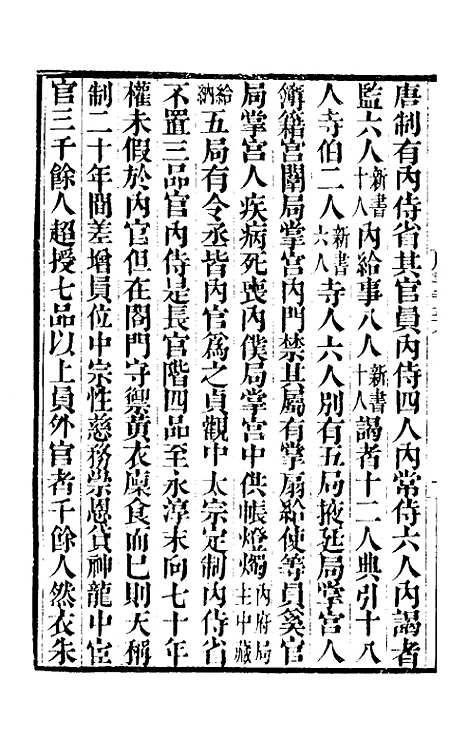 唐制有內侍省其官員內侍四人內常侍六人內謁者
監六人新書十人內給事八人新書十人謁者十二人典引十八
人寺伯二人新書六人寺人六人別有五局掖廷局掌宮人
簿籍宮闈局掌宮內門禁其屬有掌扇給使等員奚官
局掌宮人疾病死喪內僕局掌宮中供帳燈燭內府局主中藏
給納五局有令丞皆內官爲之貞觀中太宗定制內侍省
不置三品官內侍是長官階四品至永淳末向七十年
權未假於內官但在閣門守禦黃衣廩食而已則天稱
制二十年間差增員位中宗性慈務崇恩貸神龍中宦
官三千餘人超授七品以上員外官者千餘人然衣朱